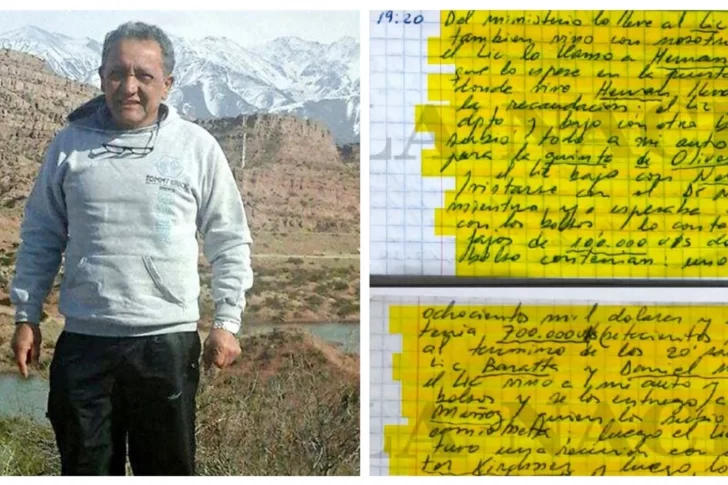 TOMMY
19:20 Del ministerio lo lleve al Lic
tambien vino con nosotro
el Lic lo llamo a Hernan
que lo espere en la puert
donde vive Hernan
la recaudacion: el Lic
dpto y bajo con otra
todo a mi auto
para la quinta de Oliv
y el Lic bajo con
con el
mientra yo esperaba
con los bolsos y lo
fajos de 100.000 u$s
bolso contenian: uno
ochociento mil dolares y
tenia 700.000 (setecientos
al termino de los 20
Lic Baratta y Daniel M
el Lic vino a mi auto
bolsos y se los entrego
Muñoz, quien los
camioneta y luego el Li
tuvo una reunion con
tor Kirchner y luego
LA NAC
LA NAC